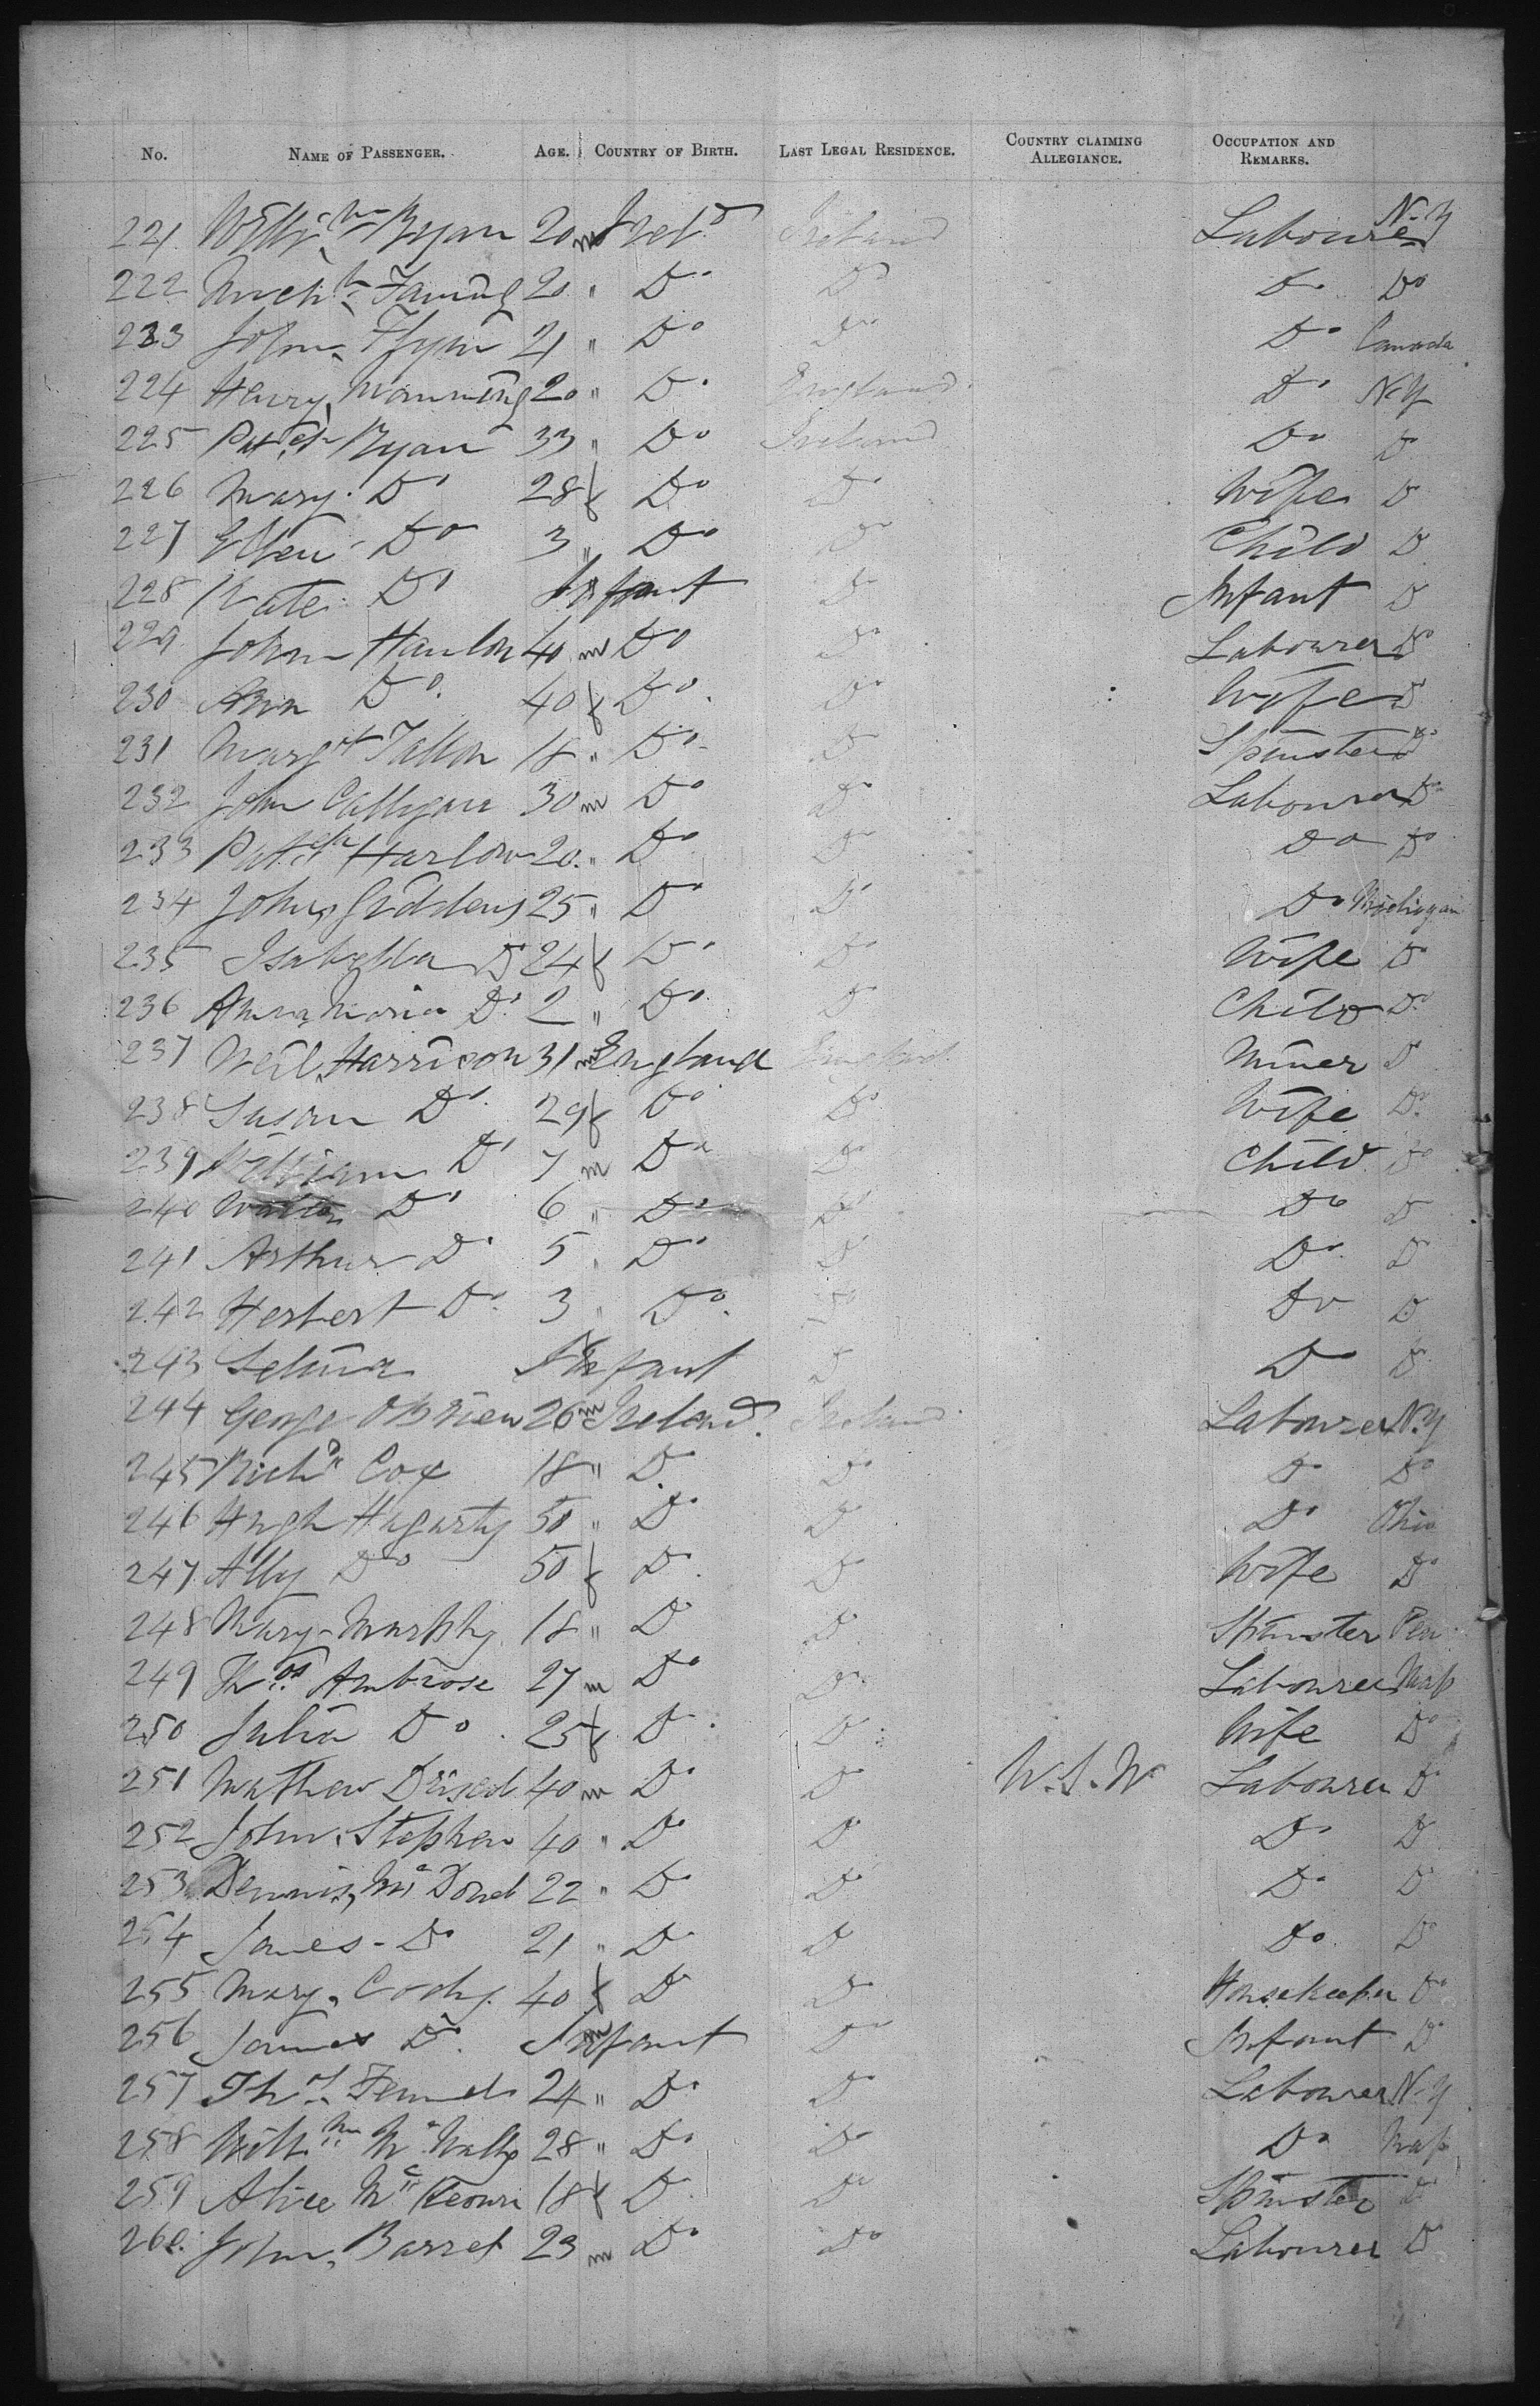 No. NAME OF PASSENGER. AGE. COUNTRY OF BIRTH. LAST LEGAL RESIDENCE. COUNTRY CLAIMING ALLEGIANCE. OCCUPATION AND REMARKS.
221 Willm Ryan 20 m Ireld Ireland Labourer N-Y
222 Michl 20 " Do Do Do Do
223 John Flynn 21 " Do Do Do Canada
224 Henry Manning 20 " Do England Do N-Y
225 Patck Ryan 33 " Do Ireland Do Do
226 Mary Do 28 f Do Do Wife Do
227 Ellen Do 3 " Do Do Child Do
228 Kate Do Infant Do Infant Do
229 John Hanlon 40 m Do Do Labourer Do
230 Ann Do 40 f Do Do Wife Do
231 Margt Tallon 18 " Do Do Spinster Do
232 John Calligan 30 m Do Do Labourer Do
233 Patck Harlow 20 " Do Do Do Do
234 John Giddens 25 " Do Do Do Michigan
235 Isabella Do 24 f Do Do Wife Do
236 Anna Maria Do 2 " Do Do Child Do
237 Neil Harrison 31 m England England Miner Do
238 Susan Do 29 f Do Do Wife Do
239 William Do 7 m Do Do Child Do
240 Walter Do 6 " Do Do Do Do
241 Arthur Do 5 " Do Do Do Do
242 Herbert Do 3 " Do Do Do Do
243 Selina Infant Do Do Do
244 George OBrien 26 m Ireland Ireland Labourer N.Y
245 Richd Cox 18 " Do Do Do Do
246 Hugh Hagarty 50 " Do Do Do Ohio
247 Ally Do 50 f Do Do Wife Do
248 Mary Murphy 18 " Do Do Spinster Pen
249 Thos Ambrose 27 m Do Do Labourer Mass
250 Julia Do 25 f Do Do Wife Do
251 Mathew 40 m Do Do Labourer Do
252 John Stephen 40 " Do Do Do Do
253 Dennis 22 " Do Do Do Do
254 James Do 21 " Do Do Do Do
255 Mary Cody 40 f Do Do Housekeeper Do
256 James Do Infant m Do Infant Do
257 Thos 24 " Do Do Labourer N-Y
258 Willm McNally 28 " Do Do Do Mass
259 Alice McKeown 18 f Do Do Spinster Do
260 John Barret 23 m Do Do Labourer Do